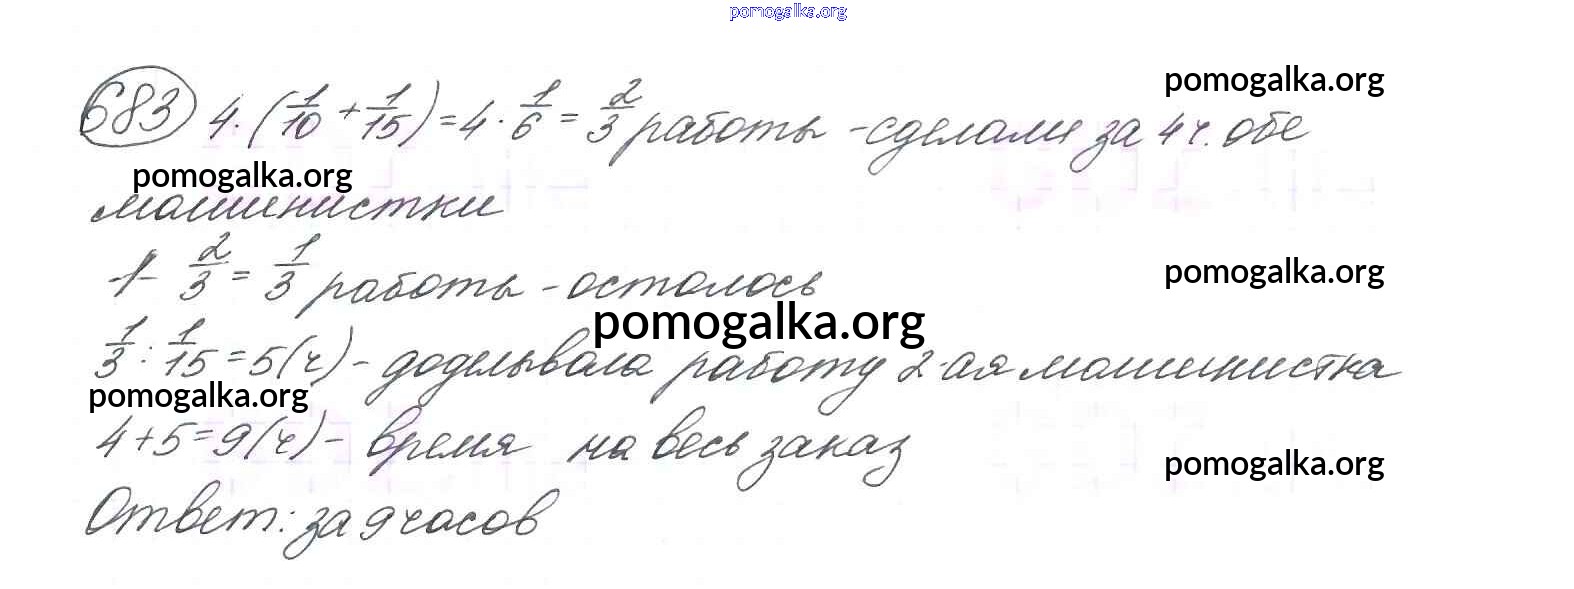 pomogalka.org
pomogalka.org
683 4·(1/10 + 1/15) = 4 · 1/6 = 2/3 работы - сделали за 4 ч. обе
pomogalka.org
машинистки
1 - 2/3 = 1/3 работы - осталось
pomogalka.org
pomogalka.org
1/3 : 1/15 = 5 (ч) - доделывала работу 2-ая машинистка
pomogalka.org
4 + 5 = 9 (ч) - время на весь заказ
pomogalka.org
Ответ: за 9 часов